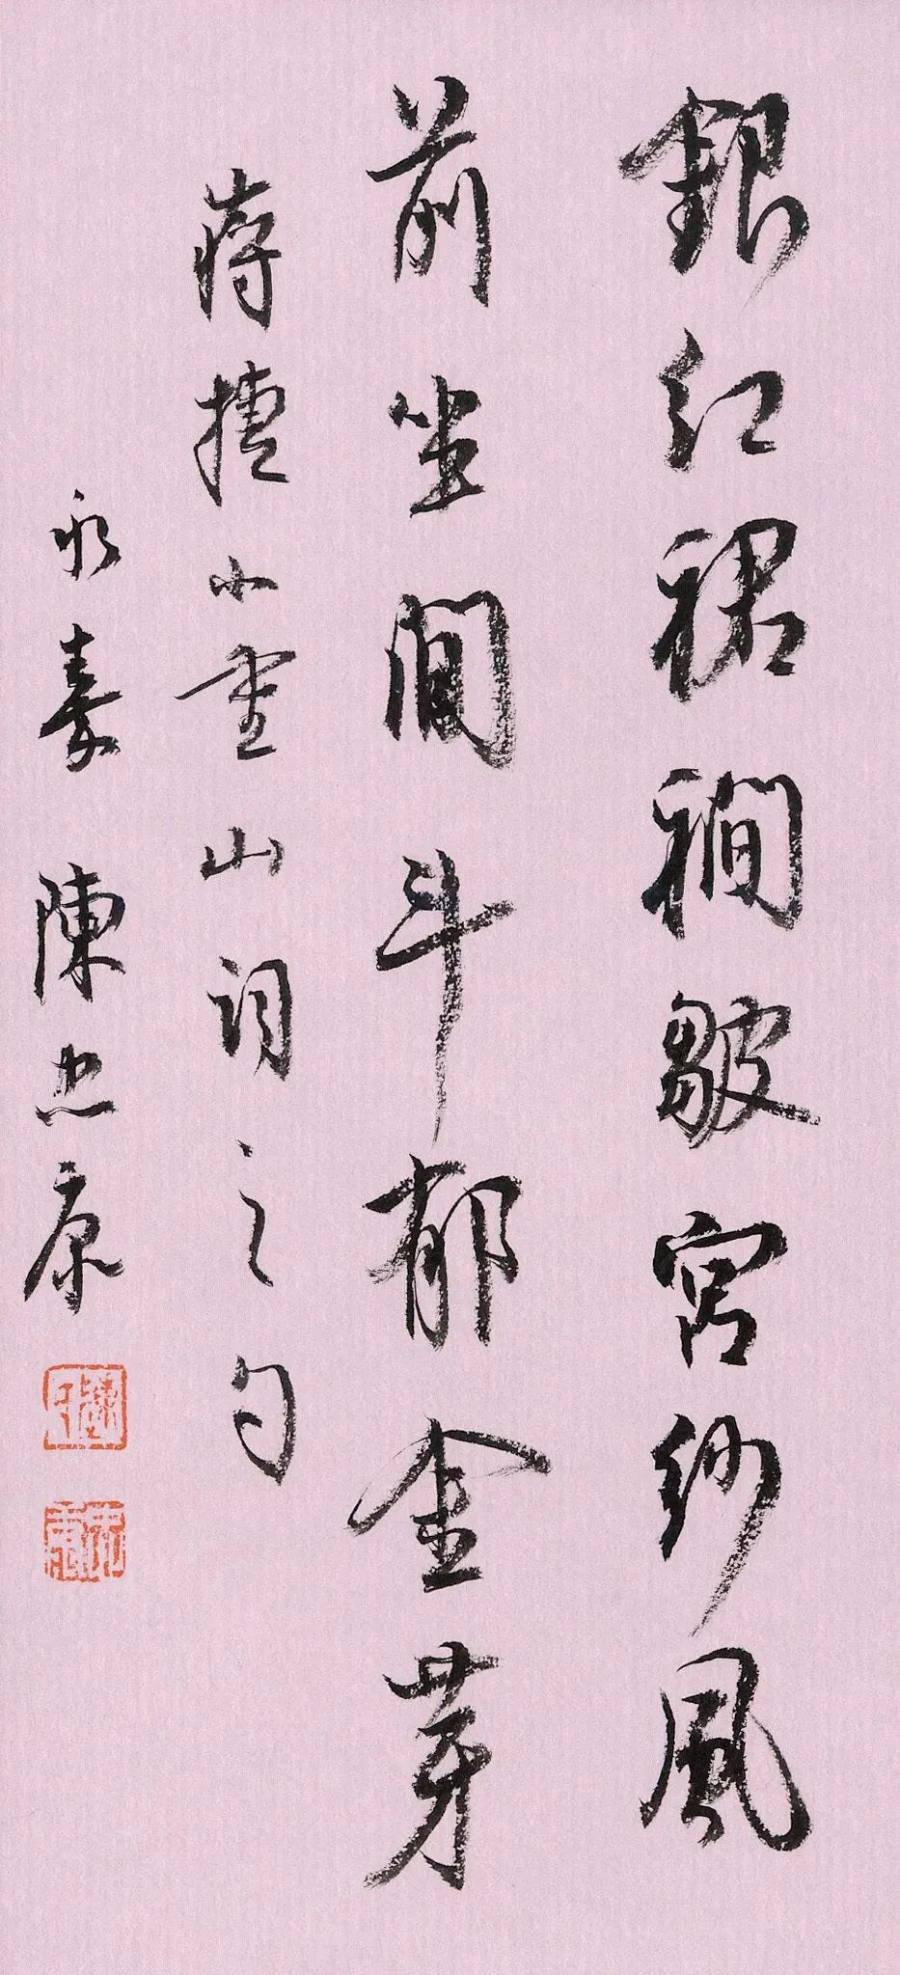 銀紅裙襇皺宮紗風
前坐間斗郁金芽
蔣捷小重山詞之句
永嘉陳忠康